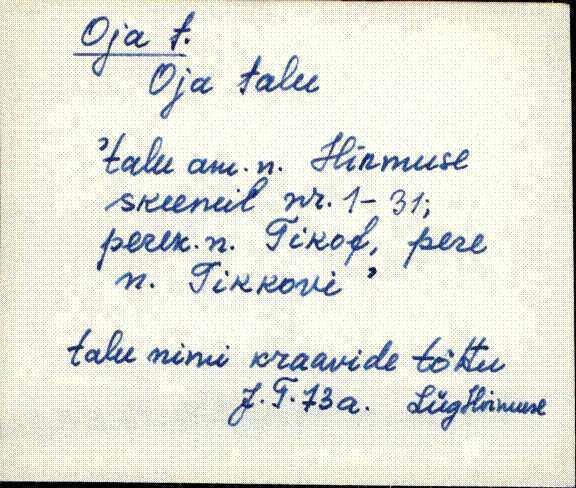 Oja t.
Oja talu
"talu am. n. Hirmuse
skeemil nr. 1-31;
perek. n. Tikof, pere
n. Tikkovi"
talu nimi kraavide tõttu
J. T. 73 a. LügHirmuse